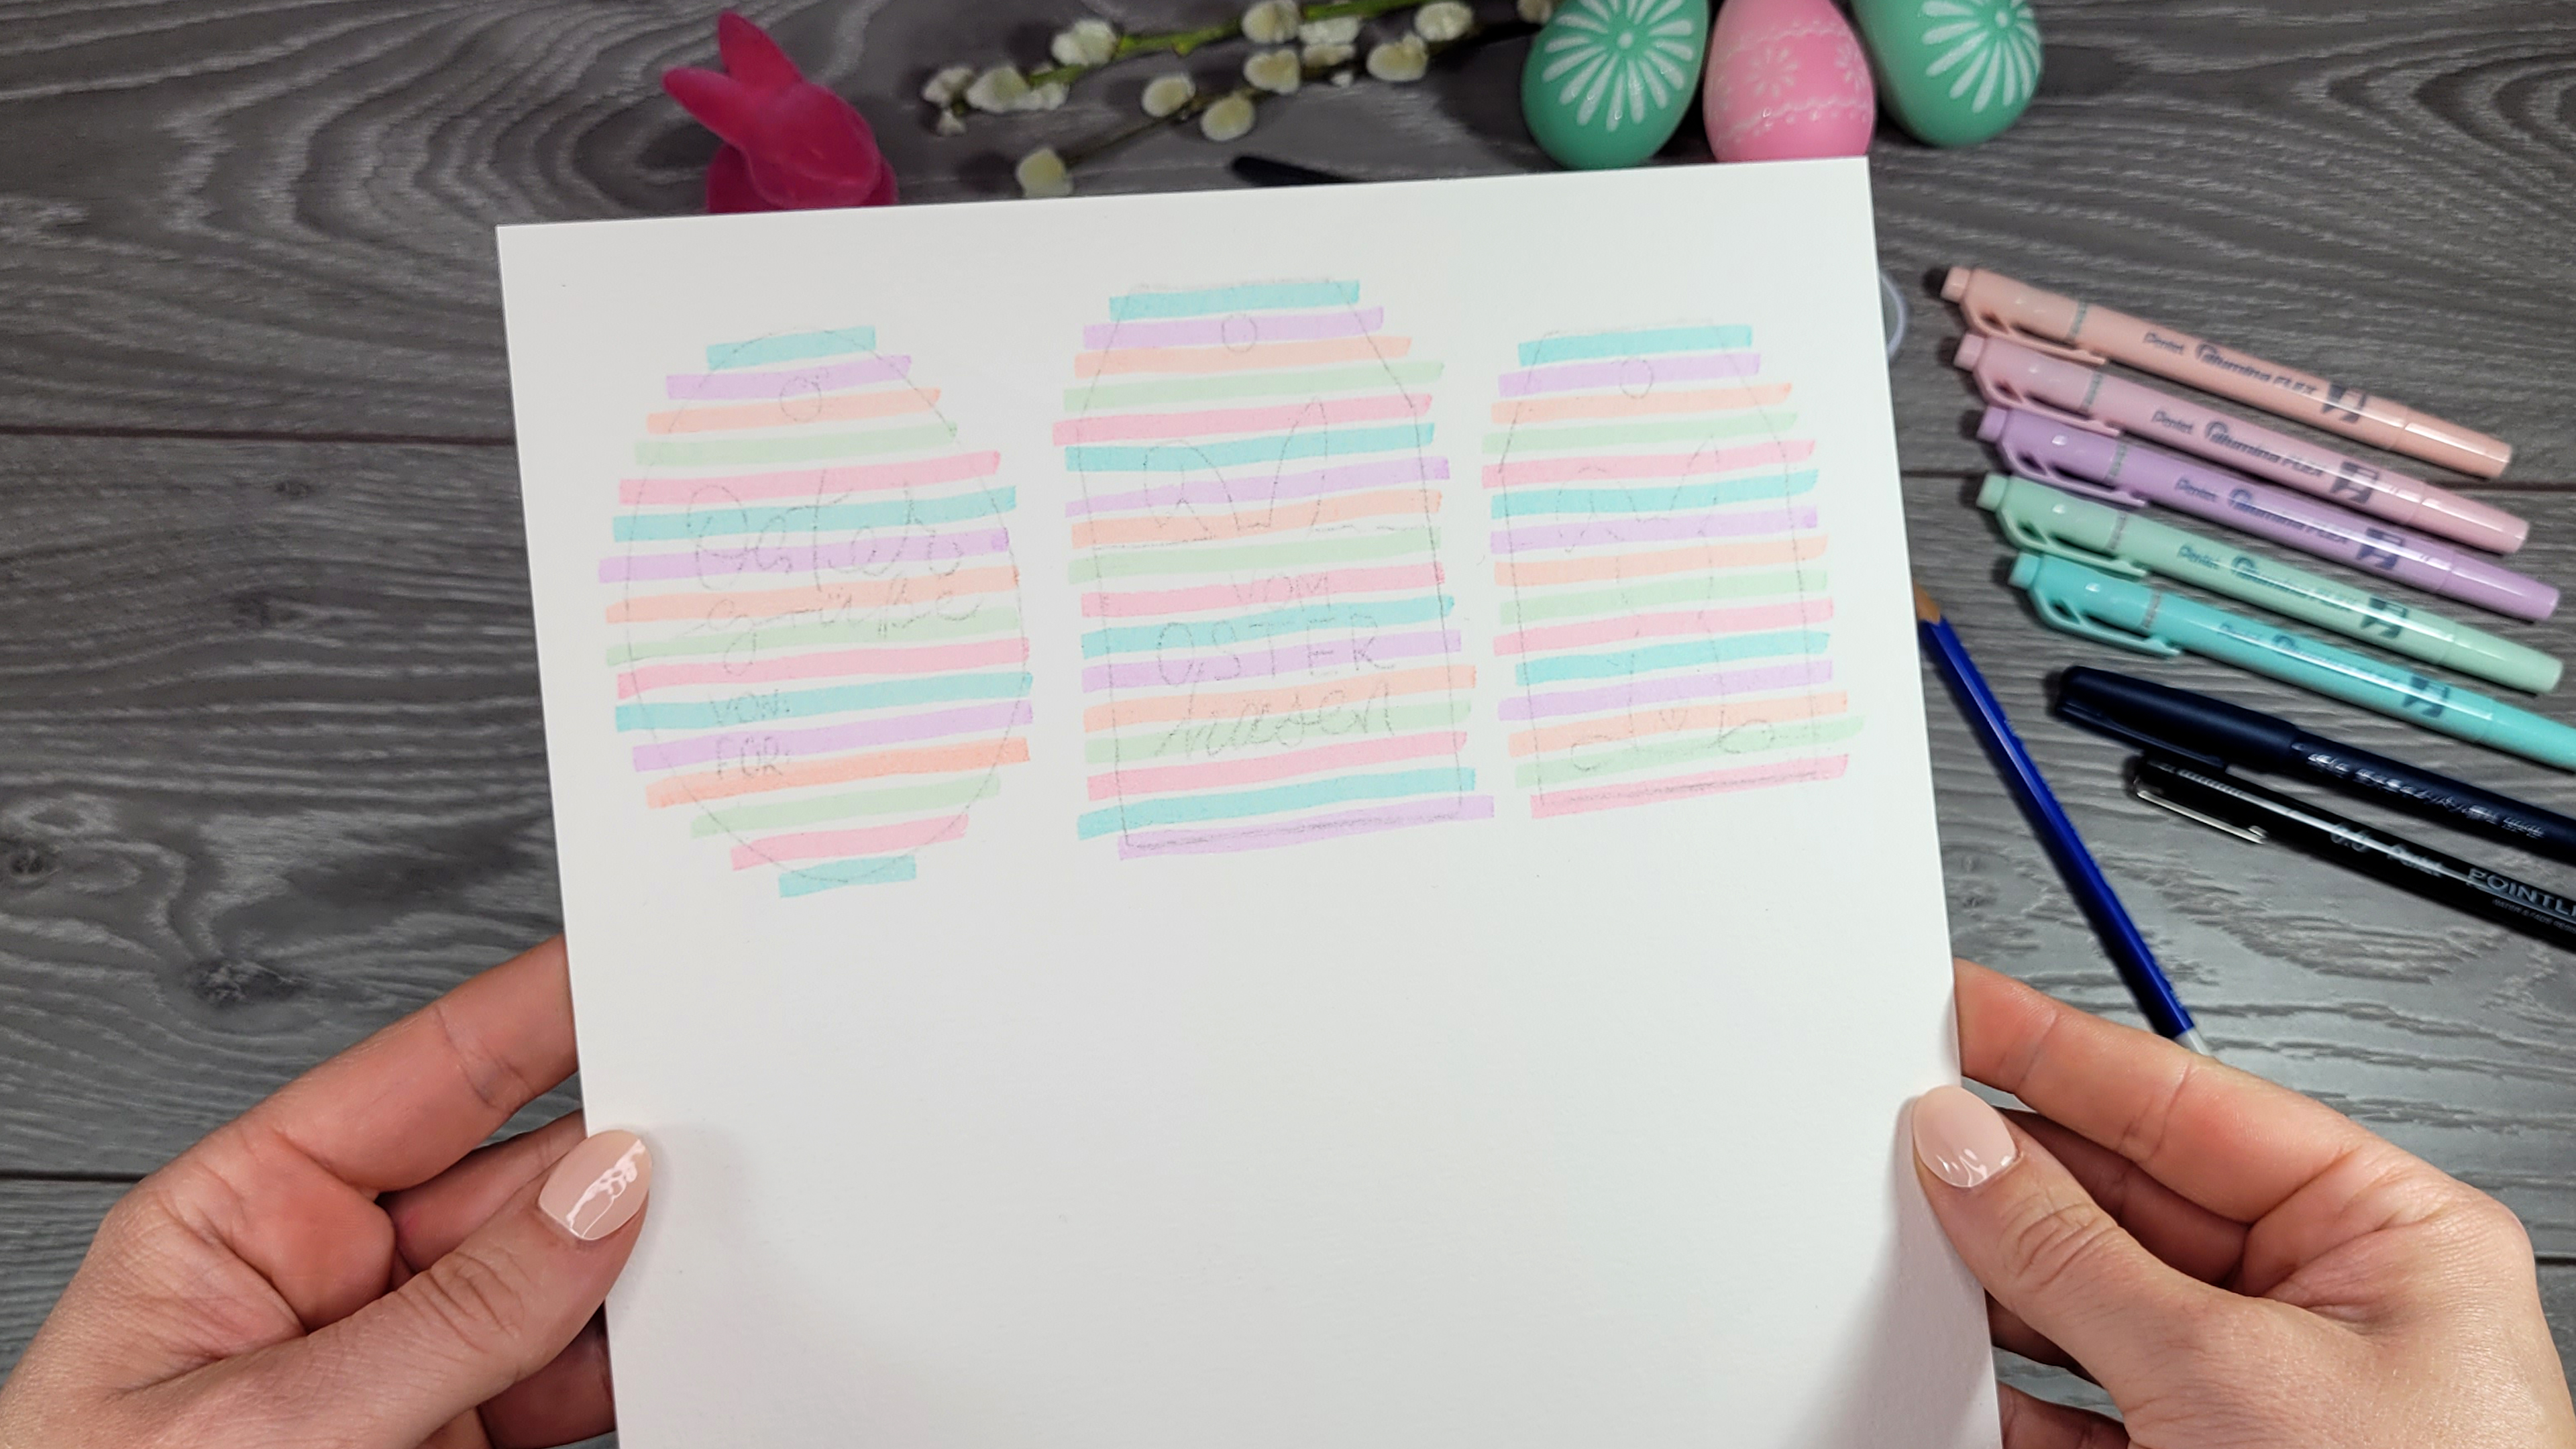 Oster
grüße
VON:
FÜR:
VOM
OSTER
hasen
Pentel illumina FLEX
Pentel illumina FLEX
Pentel illumina FLEX
Pentel illumina FLEX
0.6 Pentel POINTLI